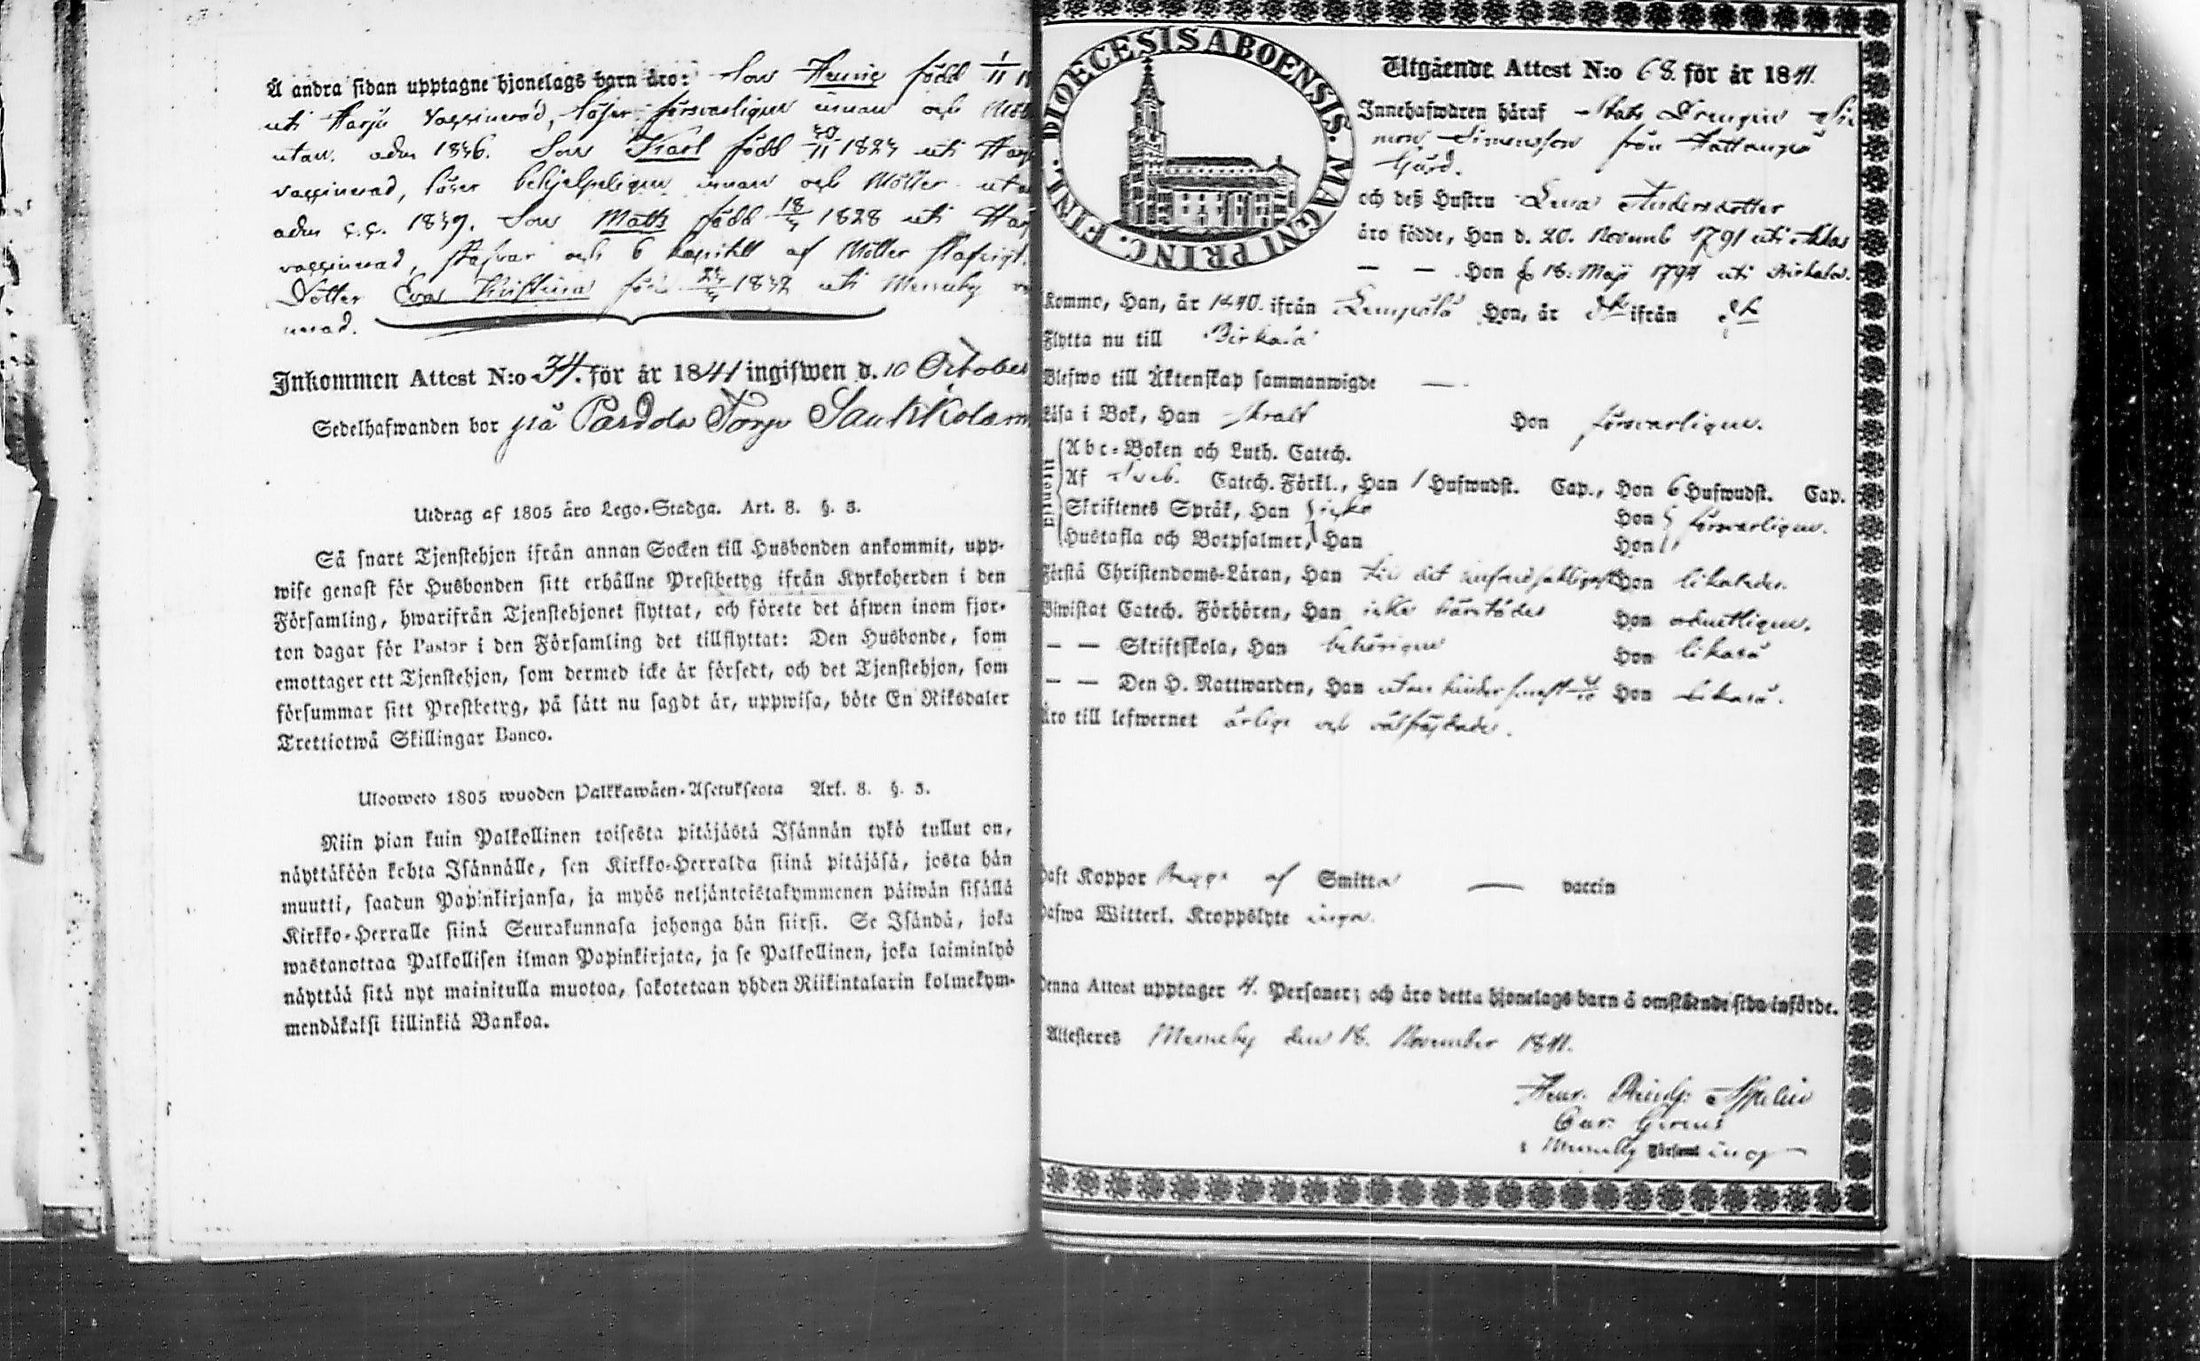 Å andra sidan upptagne hjonelags barn äro: Son Henric född 1/11
uti Harju vaccinerad, läser försvarligen innan och
utan. adm 1836. Son Karl född 1824 uti
vaccinerad, läser behjelpeligen innan och Möller
adm s.å. 1839. Son Matts född 18/ 1828 uti
vaccinerad, stafvar och 6 kapittl af Möller
Dotter Eva Kristina född 1832 uti Messuby
nerad.
Inkommen Attest N:o 34. för år 1841 ingifwen d. 10 October
Sedelhafwanden bor på Pardola Torp
Utdrag af 1805 års Lego-Stadga. Art. 8. §. 3.
Så snart Tjenstehjon ifrån annan Socken till Husbonden ankommit, upp-
wise genast för Husbonden sitt erhållne Prestbetyg ifrån Kyrkoherden i den
Församling, hwarifrån Tjenstehjonet flyttat, och förete det äfwen inom fjor-
ton dagar för Pastor i den Församling det tillflyttat: Den Husbonde, som
emottager ett Tjenstehjon, som dermed icke är försedt, och det Tjenstehjon, som
försummar sitt Prestbetyg, på sätt nu sagdt är, uppwisa, böte En Riksdaler
Trettiotwå Skillingar Banco.
Ulosweto 1805 wuoden Palkkawäen-Asetuksesta Art. 8. §. 3.
Niin pian kuin Palkollinen toisesta pitäjästä Isännän tykö tullut on,
näyttäköön kohta Isännälle, sen Kirkko-Herralda siinä pitäjäsä, josta hän
muutti, saadun Papinkirjansa, ja myös neljäntoistakymmenen päiwän sisällä
Kirkko-Herralle siinä Seurakunnasa johonga hän siirsi. Se Isändä, joka
wastanottaa Palkollisen ilman Papinkirjata, ja se Palkollinen, joka laiminlyö
näyttää sitä nyt mainitulla muotoa, sakotetaan yhden Riikintalarin kolmekym-
mendäkaksi killinkiä Bankoa.
DIOECESIS ABOENSIS. MAGNI PRINC. FINL.
Utgående Attest N:o 68. för år 1841.
Innehafwaren häraf Stats Drengen Si-
mon Simonsson från Hattanpä
Gård.
och deß Hustru Lena Andersdotter
äro födde, Han d. 20. Novemb 1791 uti
— — Hon d 18. Maji 1794 uti Birkala.
Komme, Han, år 1840. ifrån Lempälä Hon, år dto ifrån dto
Flytta nu till Birkala
Blefwo till Äktenskap sammanwigde —
Läsa i Bok, Han Hon försvarligen.
Abc-Boken och Luth. Catech.
Af Sveb. Catech. Förkl., Han 1 Hufwudst. Cap., Hon 6 Hufwudst. Cap.
Skriftenes Språk, Han icke Hon försvarligen.
Hustafla och Botpsalmer, Han Hon
Förstå Christendoms-Läran, Han till det Hon likaledes.
Biwistat Catech. Förhören, Han icke Hon ordentligen.
— — Skriftskola, Han behörigen Hon likaså
— — Den H. Nattwarden, Han utan hinder senast Hon likaså.
Äro till lefwernet ärlige och välfrejdade.
Haft Koppor Begge af Smitta — vaccin
Hafwa Witterl. Kroppslyte inga.
Denna Attest upptager 4. Personer; och äro detta hjonelags barn å omstående sida införde.
Attesteres Messuby den 18. November 1841.
Henr.
i Messuby Församling